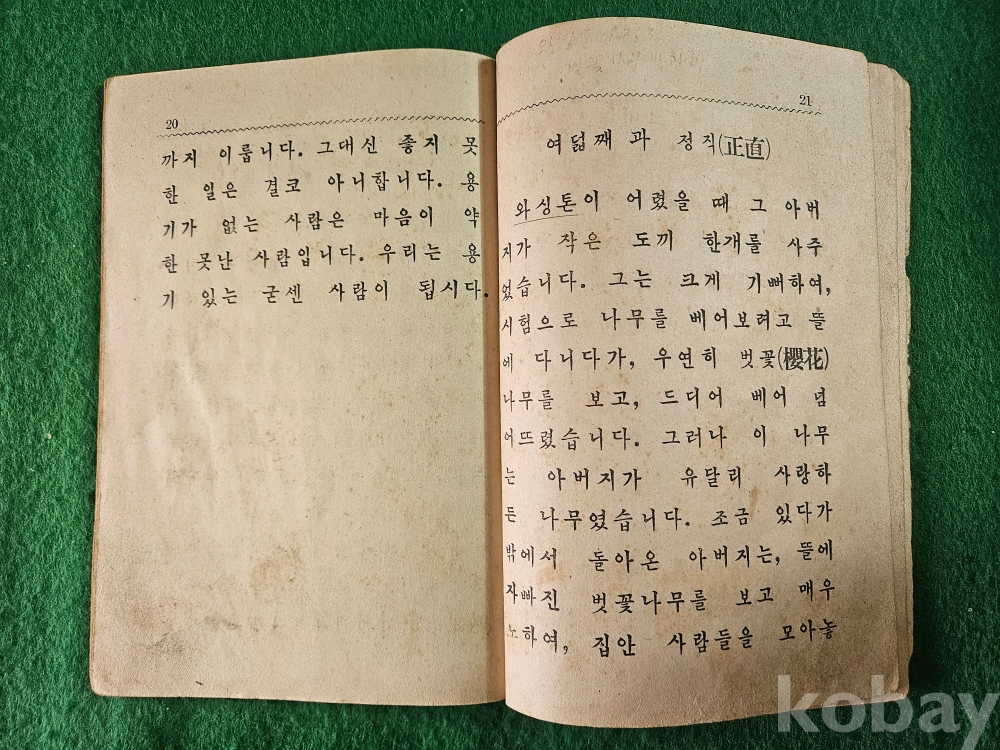 20
까지 이룹니다. 그대신 좋지 못
한 일은 결코 아니합니다. 용
기가 없는 사람은 마음이 약
한 못난 사람입니다. 우리는 용
기 있는 굳센 사람이 됩시다.
21
여덟째 과 정직(正直)
와싱톤이 어렸을 때 그 아버
지가 작은 도끼 한개를 사주
었습니다. 그는 크게 기뻐하여,
시험으로 나무를 베어보려고 뜰
에 다니다가, 우연히 벗꽃(櫻花)
나무를 보고, 드디어 베어 넘
어뜨렸습니다. 그러나 이 나무
는 아버지가 유달리 사랑하
든 나무였습니다. 조금 있다가
밖에서 돌아온 아버지는, 뜰에
자빠진 벗꽃나무를 보고 매우
노하여, 집안 사람들을 모아놓
kobay